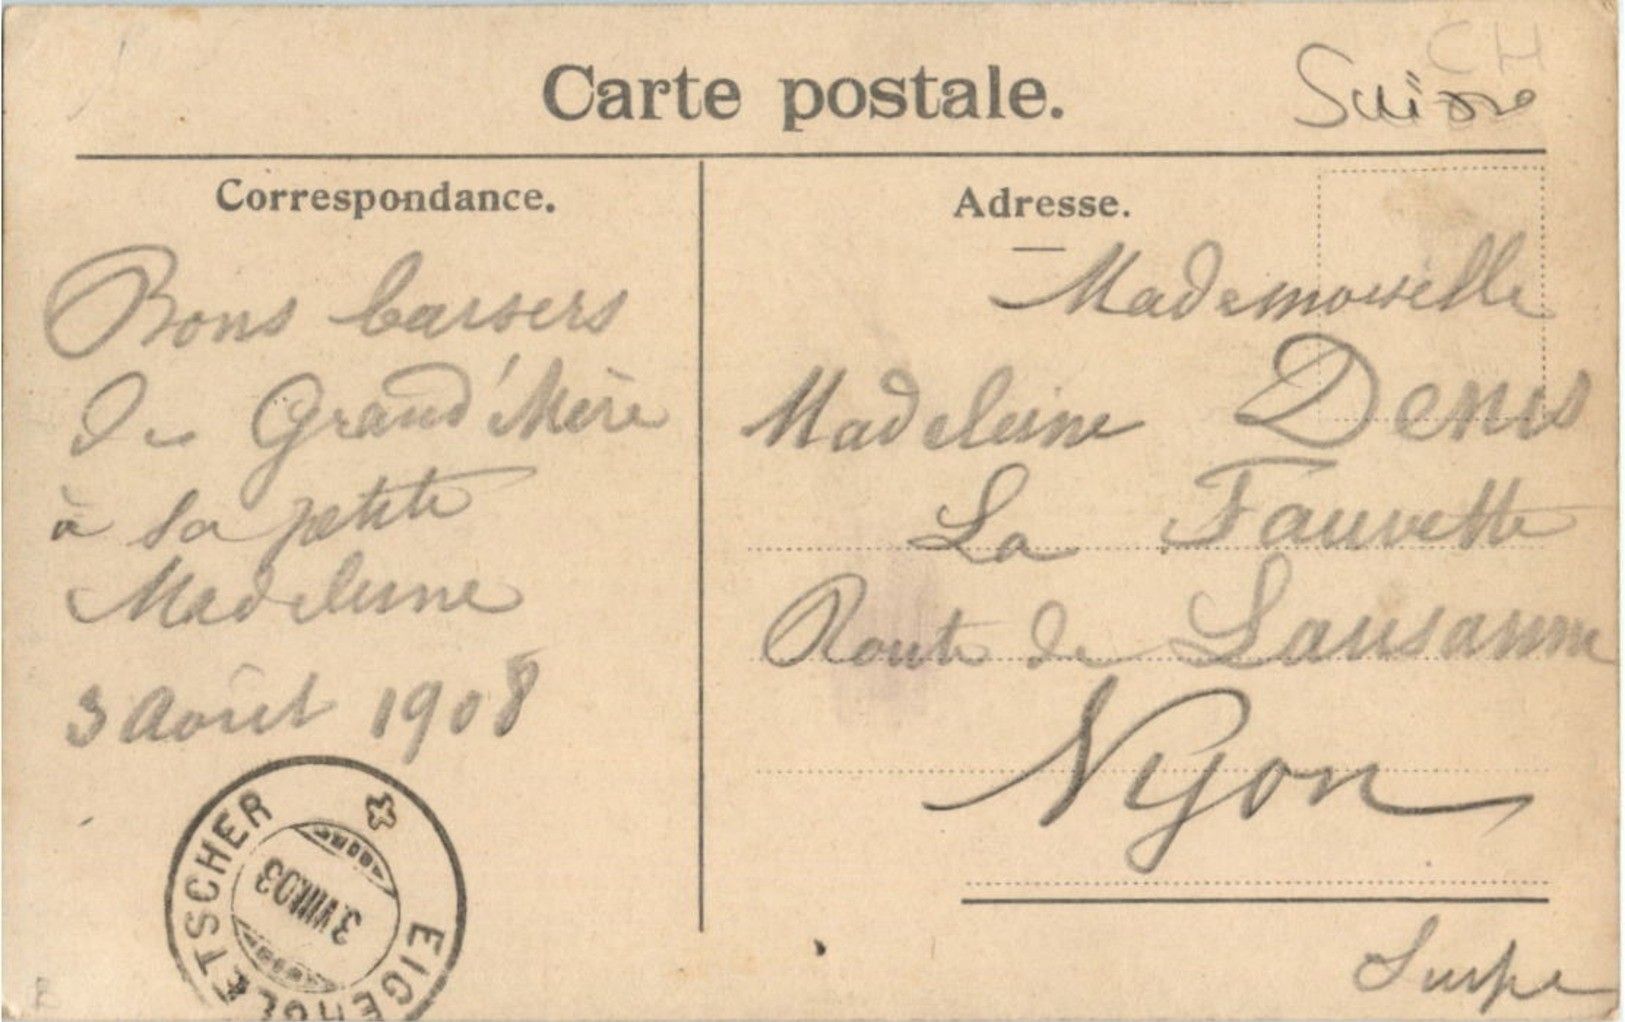 Carte postale.
CH
Suisse
Correspondance.
Bons baisers
de Grand'Mère
à sa petite
Madeleine
3 Août 1908
EIGERGLETSCHER
3.VIII.08
Adresse.
Mademoiselle
Madeleine Denis
La Fauvette
Route de Lausanne
Nyon